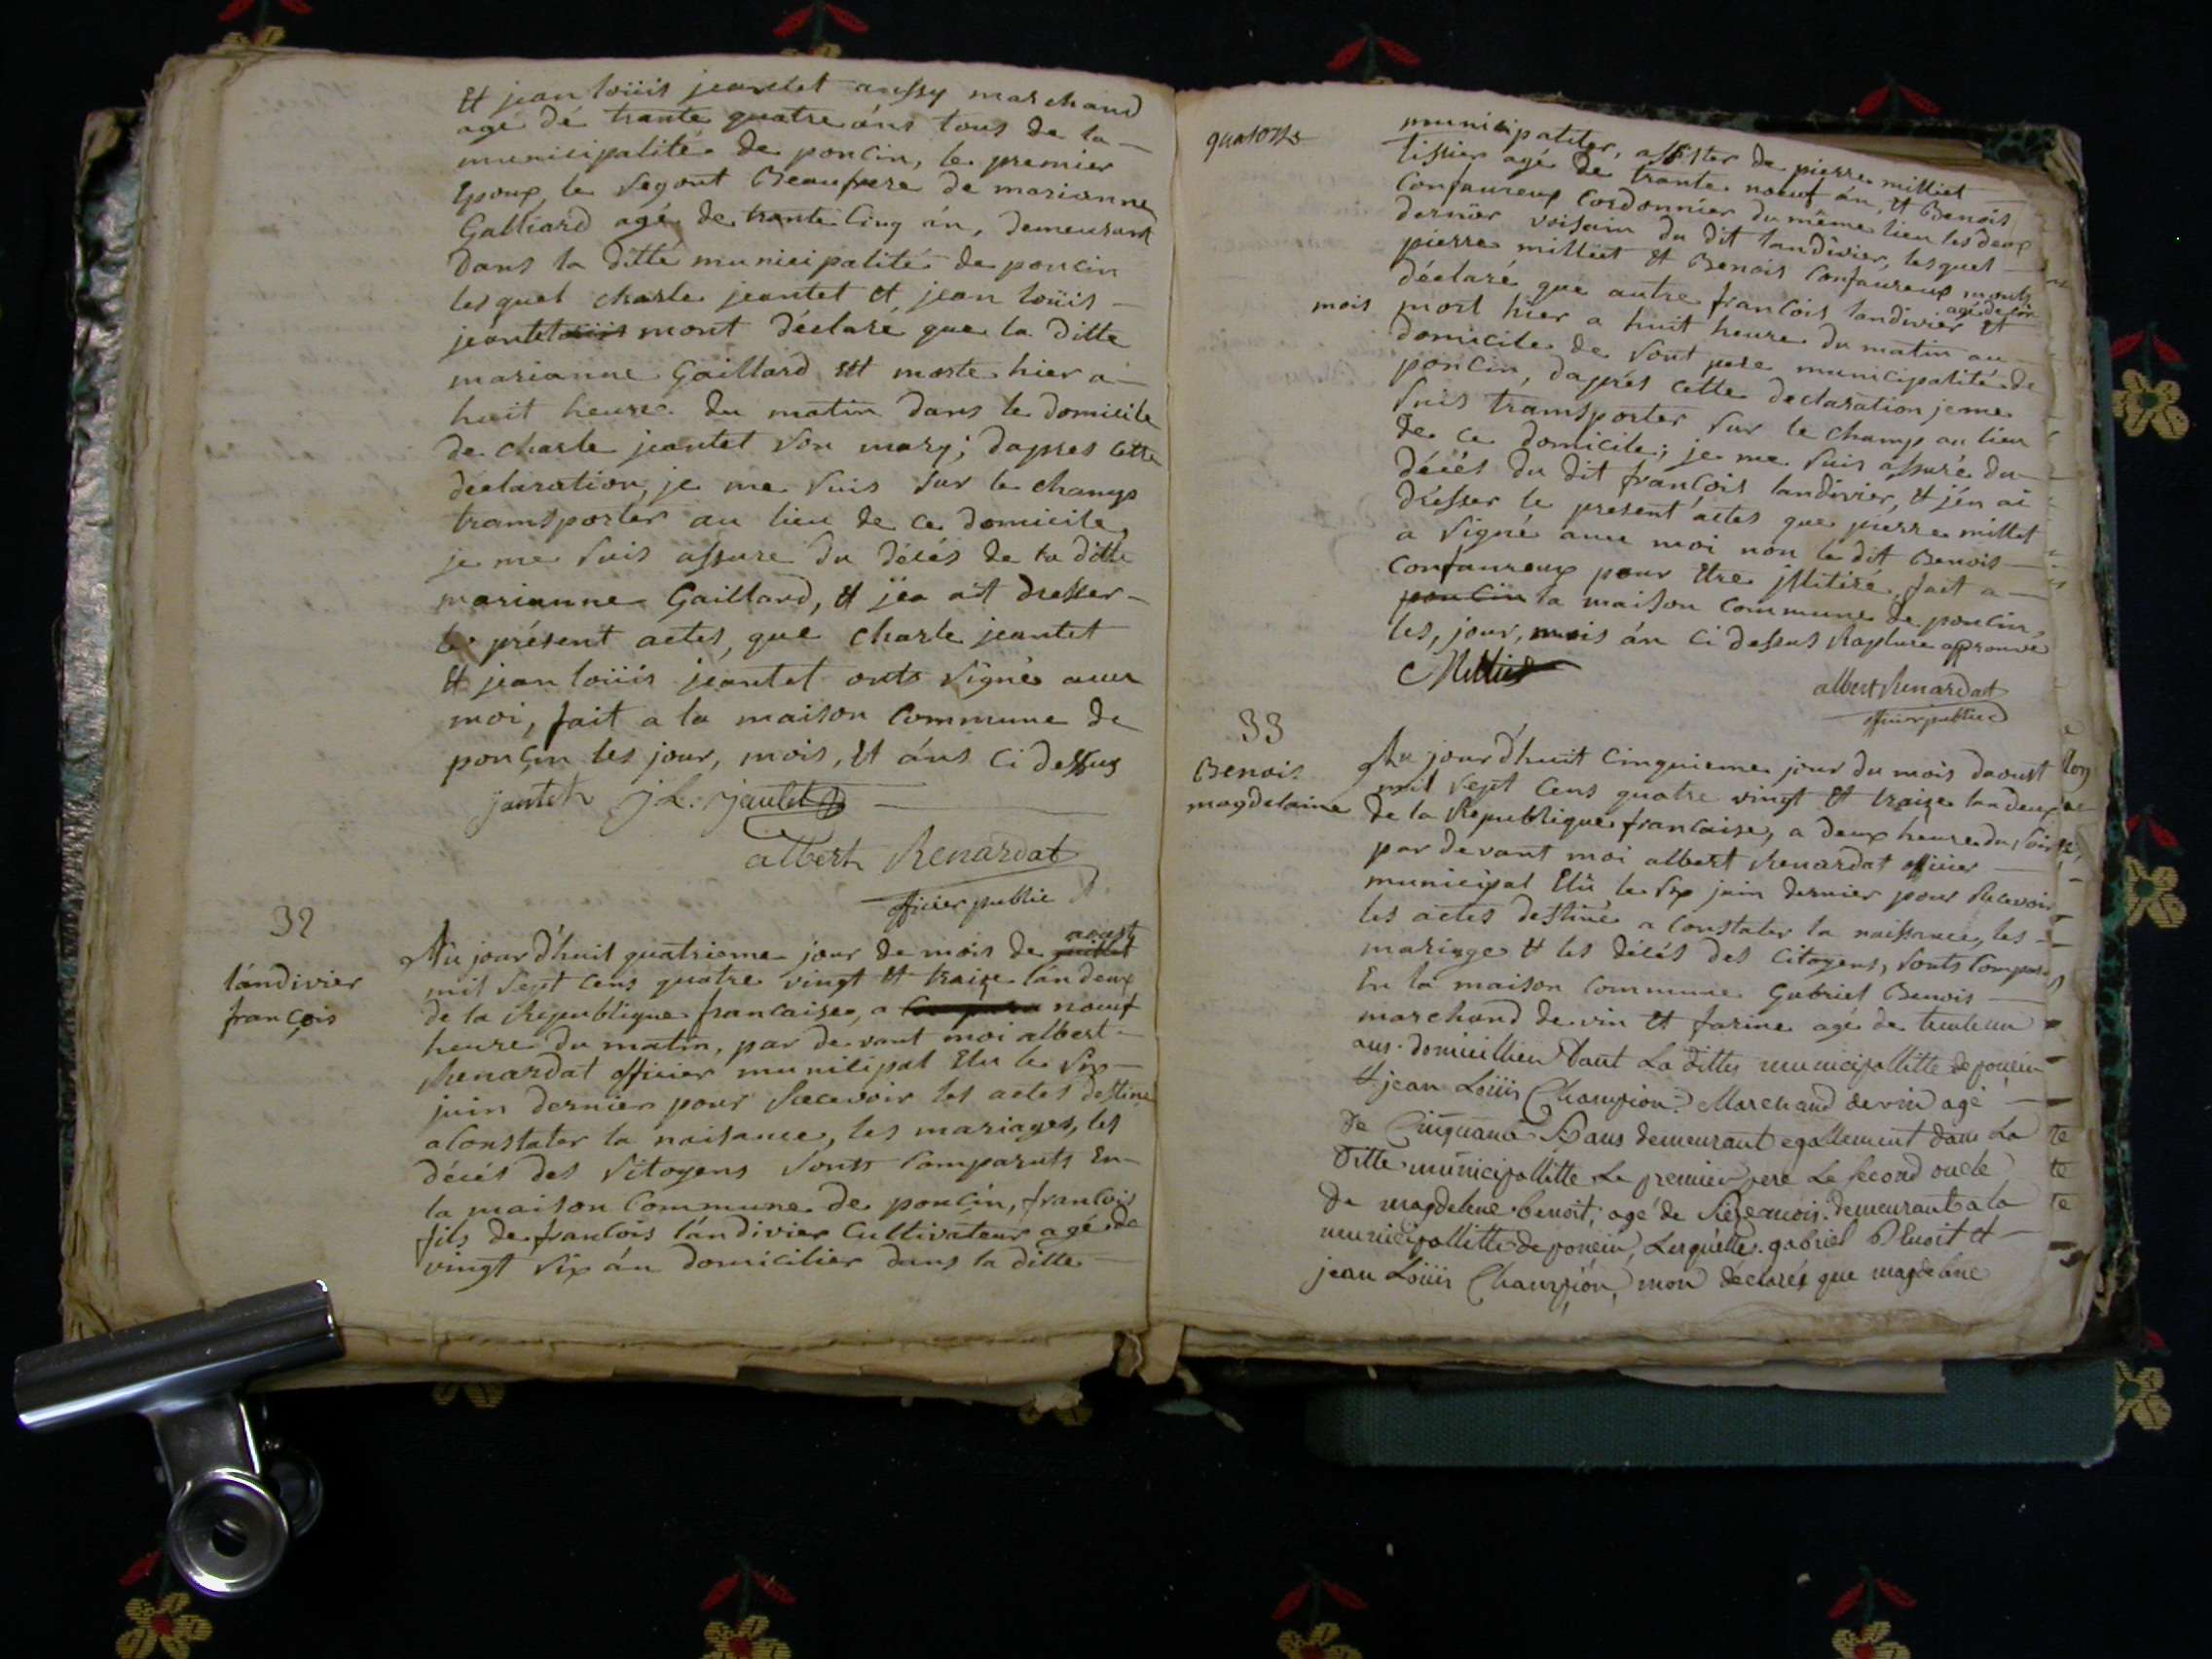 Et jean loüis jeantet aussy marchand
agé dé trante quatre áns tous de la
municipalité de poncin, le premier
Epoux, le segont Beaufrere de marianne
Galliard agé de trante Cinq án, demeurant
dans la ditte municipalité de poncin
lesquel charle jeantet et jean loüis
jeantet mont déclaré que la ditte
marianne Gaillard Est morte hier a
huit heure du matin dans le domicile
de charle jeantet son mary; dapres cette
déclaration, je me suis sur le champs
transporter au lieu de ce domicile,
je me suis assure du décés de la ditte
marianne Gaillard, et jén ait dresser
le présent actes, que charle jeantet
Et jean loüis jeantet onts signé avec
moi, fait a la maison Commune de
poncin les jour, mois, Et áns Ci dessus
jantet J L: jantet
albert Renardat
officier public
32
lándivier
françois
Au jourd'huit quatrieme jour de mois de juillet aoust
mil sept Cens quatre vingt Et traize lán deux
de la République francaise, a nouf
heure du matin, par devant moi albert
Renardat officier municipal Elu le six
juin dernier pour Recevoir les actes destiné
a Constater la naisance, les mariages, les
décés des Sitoyens sonts Comparuts En
la maison Commune de poncin, francois
fils de francois lándivier Cultivateur agé de
vingt six án domicilier dans la ditte
quatorze
municipaliter, assister de pierre milliet
tissier agé de trante noeuf án, Et Benois
Confaureux Cordonnier du même lieu les deux
dernïer voisain du dit landivier, lesquel
pierre milliet Et Benois Confaureux monts
déclaré que autre francois landivier agé de
mois mort hier a huit heure du matin au
domicile de sont pere municipalité de
poncin, daprés cette declaration je me
suis transporter sur le champ au lieu
de ce domicile; je me suis assuré du
décés du dit francois landivier, Et jén ai
drésser le present actes que pierre millet
a signé avec moi non le dit Benois
Confaureux pour Etre jllitiré, fait a
poncin la maison Commune de poncin,
les, jour, mois án Ci dessus Rapture aprouvé
Milliet
albert Renardat
officier public
33
Benois
magdelaine
Au jourd'huit Cinquieme jour du mois daoust
mil sept Cens quatre vingt Et traize lan deux
de la Republique francaise, a deux heure du soir
par devant moi albert Renardat officier
municipal Elü le six juin dernier pour Recevoir
les actes destiné a Constater la naissance, les
mariage Et les décés des Citoyens, sonts Comparu
En la maison Commune Gabriel Benois
marchand de vin Et farine agé de
ans. domicillier dant La ditte municipallitte de poncin
Et jean Loüis Champion Marchand de vin agé
de Cinquante six ans demeurant egallement dans La
ditte municipallitte Le premier pere Le second oncle
de magdelene benoit, agé de sieze mois. demeurant a la
municipallitte de poncin, Lesquelle. gabriel Benoit et
jean Loüis Champion, mon déclarés que magdelene